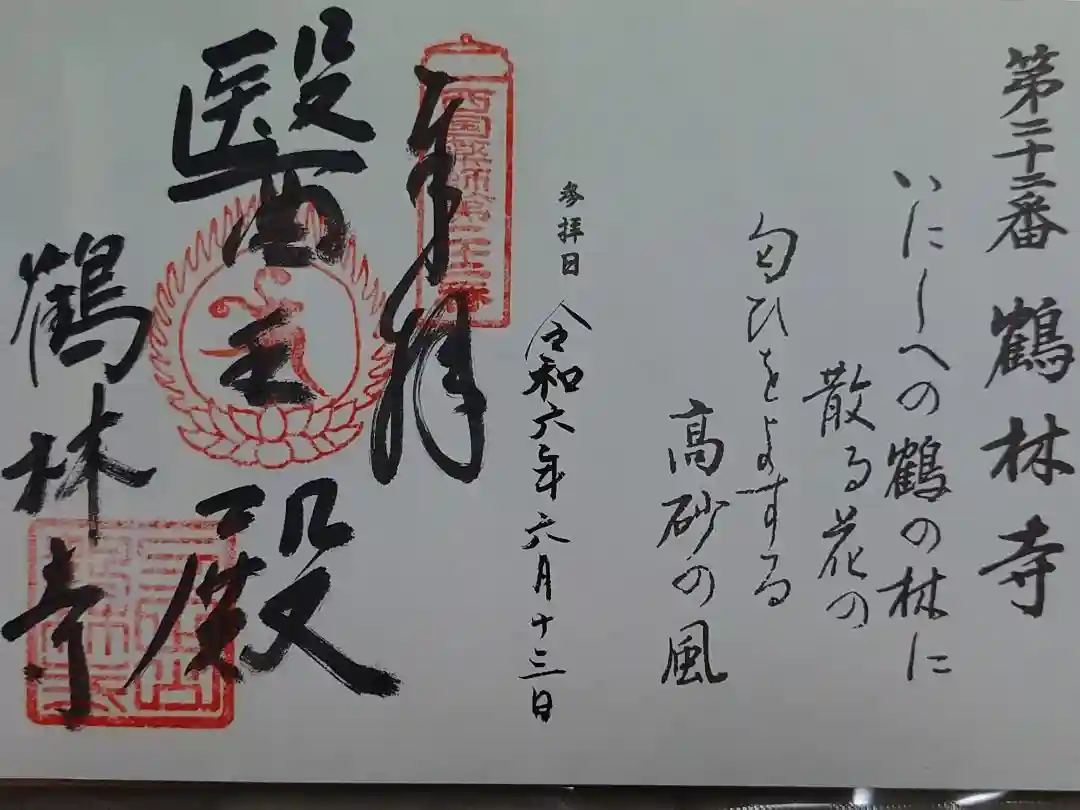 第二十二番 鶴林寺
いにしへの鶴の林に
散る花の
匂ひをよする
高砂の風
参拝日 令和六年六月十三日
奉拝
西国薬師第二十二番
醫王殿
鶴林寺